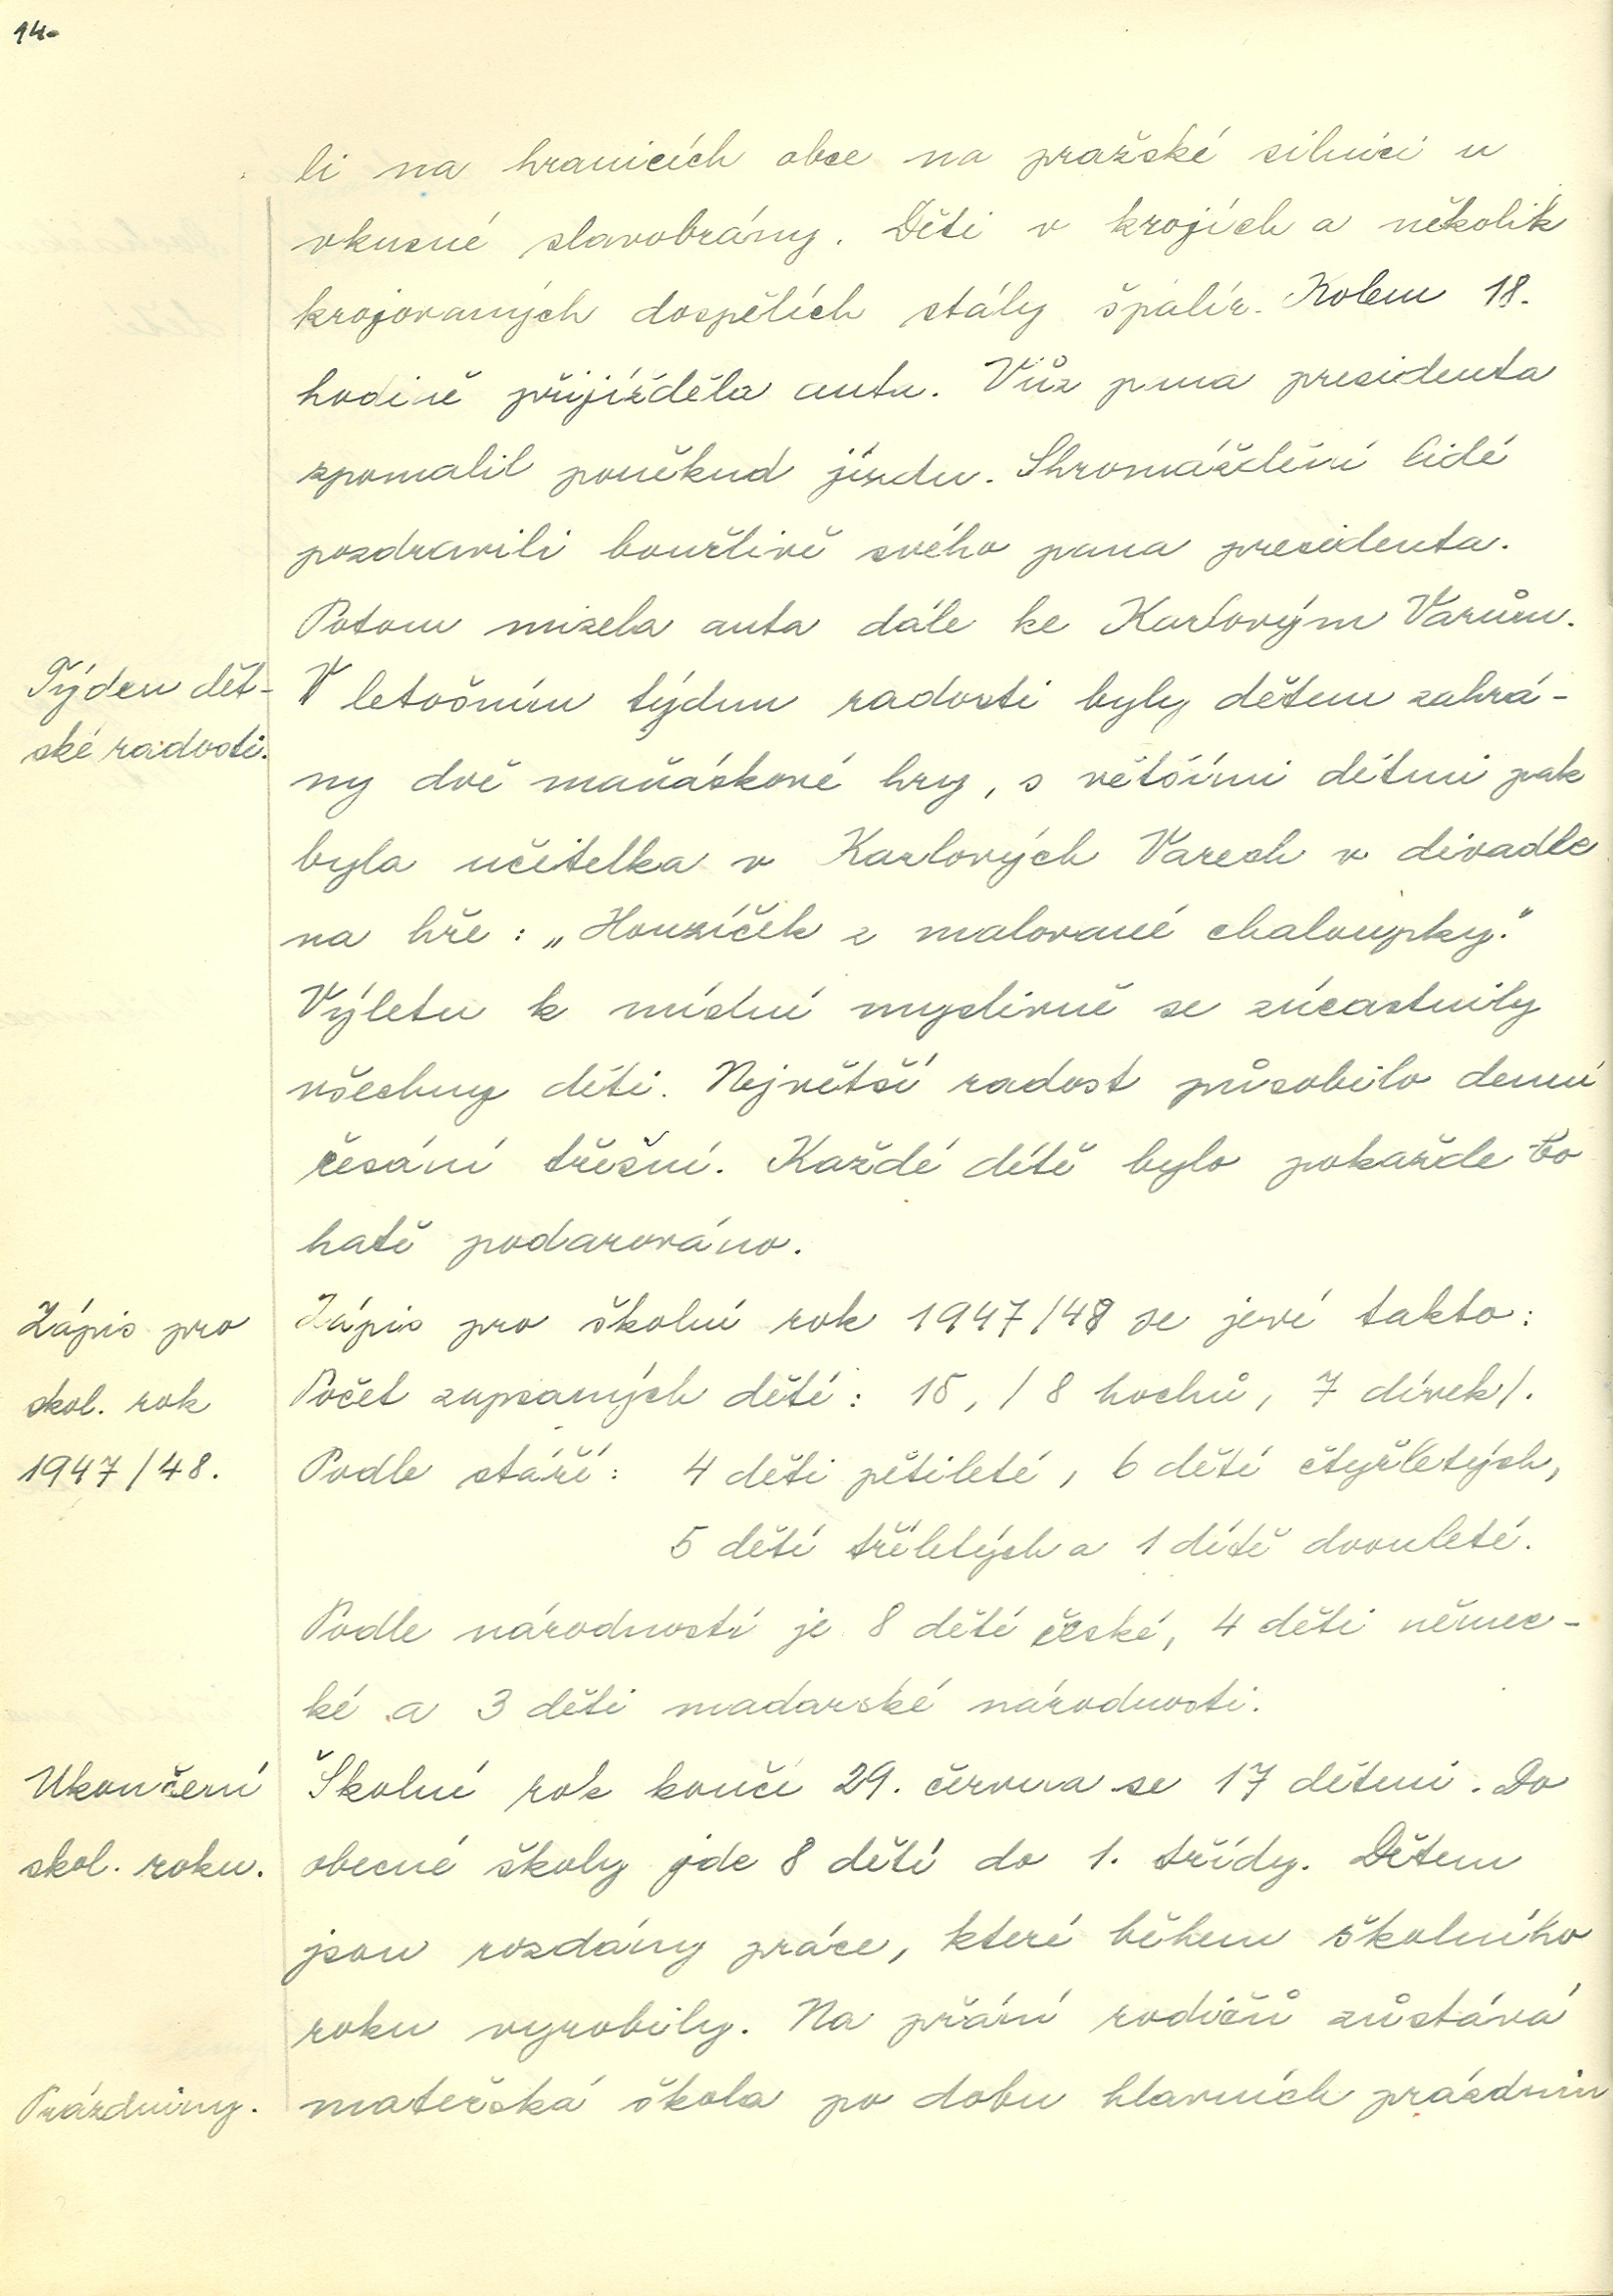 14.
li na hranicích obce na pražské silnici u
vkusné slavobrány. Děti v krojích a několik
krojovaných dospělích stály špalír. Kolem 18.
hodině přijížděla auta. Vůz pana presidenta
zpomalil poněkud jízdu. Shromáždění lidé
pozdravili bouřlivě svého pana presidenta.
Potom mizela auta dále ke Karlovým Varům.
Týden dět-
ské radosti.
V letošním týdnu radosti byly dětem zahrá-
ny dvě maňáskové hry, s většími dětmi pak
byla učitelka v Karlových Varech v divadle
na hře: „Honzíček z malované chaloupky."
Výletu k místní myslivně se zúčastnily
všechny děti. Největší radost působilo denní
česání třešní. Každé dítě bylo pokaždé bo
hatě podarováno.
Zápis pro
skol. rok
1947/48.
Zápis pro školní rok 1947/48 se jeví takto:
Počet zapsaných dětí: 15, / 8 hochů, 7 dívek/.
Podle stáří: 4 děti pětileté, 6 dětí čtyřletých,
5 dětí tříletých a 1 dítě dvouleté.
Podle národností je 8 dětí české, 4 děti němec-
ké a 3 děti madarské národnosti.
Ukončení
skol. roku.
Školní rok končí 29. června se 17 dětmi. Do
obecné školy jde 8 dětí do 1. třídy. Dětem
jsou rozdány práce, které během školního
roku vyrobily. Na přání rodičů zůstává
Prázdniny.
mateřská škola po dobu hlavních prázdnin